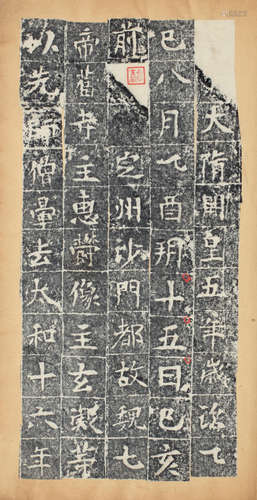 大隋開皇五年歲次乙
巳八月乙酉朔十五日己亥
前定州沙門都故魏七
帝舊寺主惠鬱像主玄凝等
以先師僧暈去太和十六年